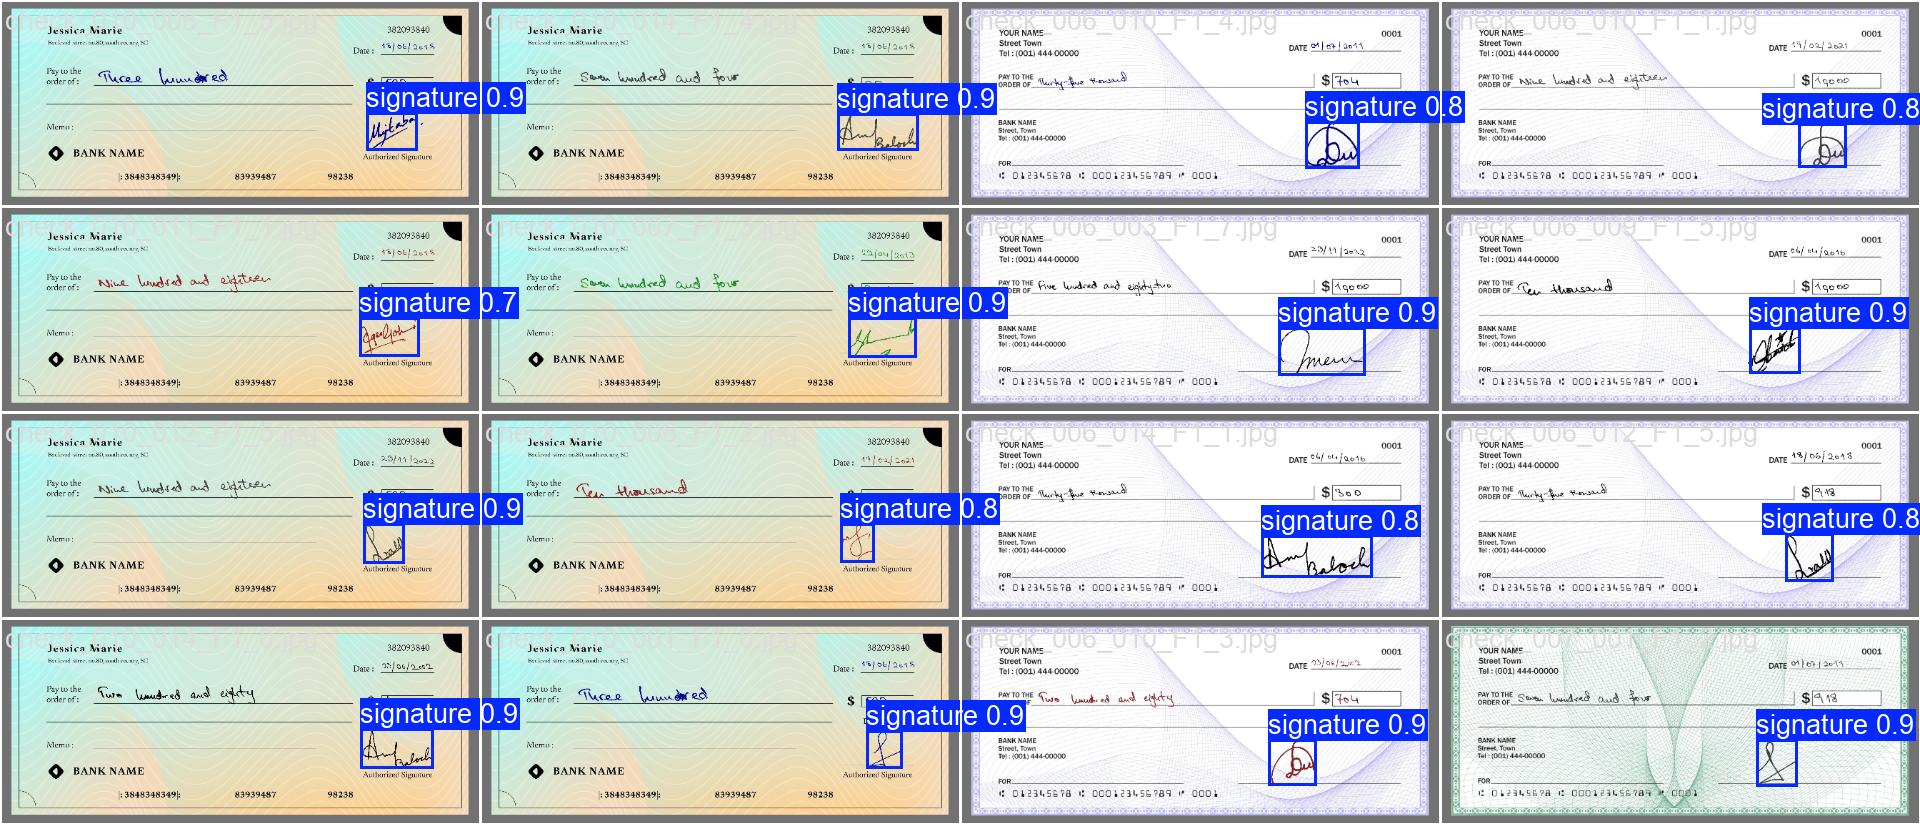 Jessica Marie
382093840
Boulevad street no.80, south county, SC
Date : 18/06/2018
Pay to the
order of : Three hundred
signature 0.9
Memo :
BANK NAME
Authorized Signature
|: 3848348349|: 83939487 98238
Jessica Marie
382093840
Boulevad street no.80, south county, SC
Date : 18/06/2018
Pay to the
order of : Seven hundred and four
signature 0.9
Memo :
BANK NAME
Authorized Signature
|: 3848348349|: 83939487 98238
check_006_010_F1_4.jpg
YOUR NAME 0001
Street Town
Tel : (001) 444-00000
DATE 01/07/2011
PAY TO THE
ORDER OF Thirty-five thousand $ 704
signature 0.8
BANK NAME
Street, Town
Tel : (001) 444-00000
FOR
012345678 000123456789 0001
check_006_010_F1_1.jpg
YOUR NAME 0001
Street Town
Tel : (001) 444-00000
DATE 17/02/2021
PAY TO THE
ORDER OF Nine hundred and eighteen $ 19000
signature 0.8
BANK NAME
Street, Town
Tel : (001) 444-00000
FOR
012345678 000123456789 0001
Jessica Marie
382093840
Boulevad street no.80, south county, SC
Date : 18/06/2018
Pay to the
order of : Nine hundred and eighteen
signature 0.7
Memo :
BANK NAME
Authorized Signature
|: 3848348349|: 83939487 98238
Jessica Marie
382093840
Boulevad street no.80, south county, SC
Date : 22/04/2013
Pay to the
order of : Seven hundred and four
signature 0.9
Memo :
BANK NAME
Authorized Signature
|: 3848348349|: 83939487 98238
check_006_003_F1_7.jpg
YOUR NAME 0001
Street Town
Tel : (001) 444-00000
DATE 23/11/2022
PAY TO THE
ORDER OF Five hundred and eighty two $ 19000
signature 0.9
BANK NAME
Street, Town
Tel : (001) 444-00000
FOR
012345678 000123456789 0001
check_006_009_F1_5.jpg
YOUR NAME 0001
Street Town
Tel : (001) 444-00000
DATE 06/04/2016
PAY TO THE
ORDER OF Ten thousand $ 19000
signature 0.9
BANK NAME
Street, Town
Tel : (001) 444-00000
FOR
012345678 000123456789 0001
Jessica Marie
382093840
Boulevad street no.80, south county, SC
Date : 23/11/2022
Pay to the
order of : Nine hundred and eighteen
signature 0.9
Memo :
BANK NAME
Authorized Signature
|: 3848348349|: 83939487 98238
Jessica Marie
382093840
Boulevad street no.80, south county, SC
Date : 17/02/2021
Pay to the
order of : Ten thousand
signature 0.8
Memo :
BANK NAME
Authorized Signature
|: 3848348349|: 83939487 98238
check_006_014_F1_1.jpg
YOUR NAME 0001
Street Town
Tel : (001) 444-00000
DATE 06/04/2016
PAY TO THE
ORDER OF Thirty-five thousand $ 300
signature 0.8
BANK NAME
Street, Town
Tel : (001) 444-00000
FOR
012345678 000123456789 0001
check_006_012_F1_5.jpg
YOUR NAME 0001
Street Town
Tel : (001) 444-00000
DATE 18/06/2018
PAY TO THE
ORDER OF Thirty-five thousand $ 918
signature 0.8
BANK NAME
Street, Town
Tel : (001) 444-00000
FOR
012345678 000123456789 0001
Jessica Marie
382093840
Boulevad street no.80, south county, SC
Date : 23/06/2002
Pay to the
order of : Two hundred and eighty
signature 0.9
Memo :
BANK NAME
Authorized Signature
|: 3848348349|: 83939487 98238
Jessica Marie
382093840
Boulevad street no.80, south county, SC
Date : 18/06/2018
Pay to the
order of : Three hundred $
signature 0.9
Memo :
BANK NAME
Authorized Signature
|: 3848348349|: 83939487 98238
check_006_010_F1_3.jpg
YOUR NAME 0001
Street Town
Tel : (001) 444-00000
DATE 23/06/2002
PAY TO THE
ORDER OF Two hundred and eighty $ 704
signature 0.9
BANK NAME
Street, Town
Tel : (001) 444-00000
FOR
012345678 000123456789 0001
YOUR NAME 0001
Street Town
Tel : (001) 444-00000
DATE 01/07/2011
PAY TO THE
ORDER OF Seven hundred and four $ 918
signature 0.9
BANK NAME
Street, Town
Tel : (001) 444-00000
FOR
012345678 000123456789 0001